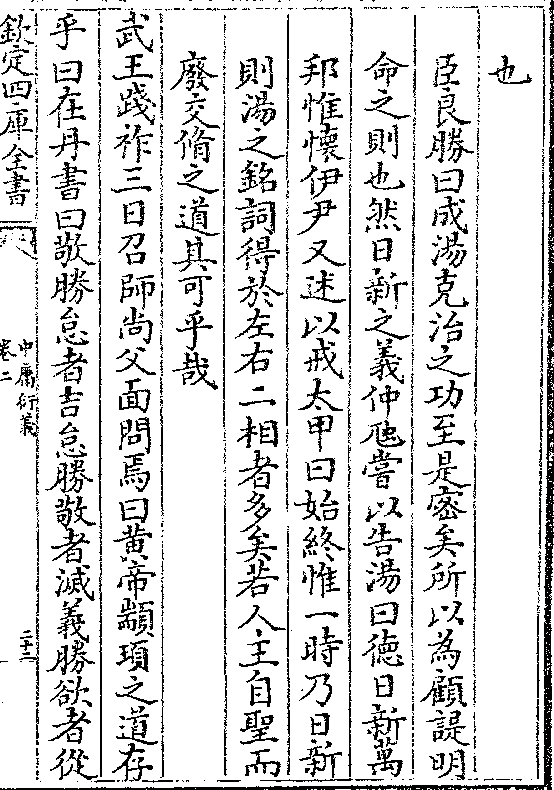 也
臣良勝曰成湯克治之功至是密矣所以為顧諟明
命之則也然日新之義仲虺嘗以告湯曰徳日新萬
邦惟懷伊尹又述以戒太甲曰始終惟一時乃日新
則湯之銘詞得於左右二相者多矣若人主自聖而
廢交脩之道其可乎哉
武王踐祚三日召師尚父面問焉曰黄帝顓頊之道存
乎曰在丹書曰敬勝怠者吉怠勝敬者滅義勝欲者從
欽定四庫全書
中庸衍義
卷二
二十二